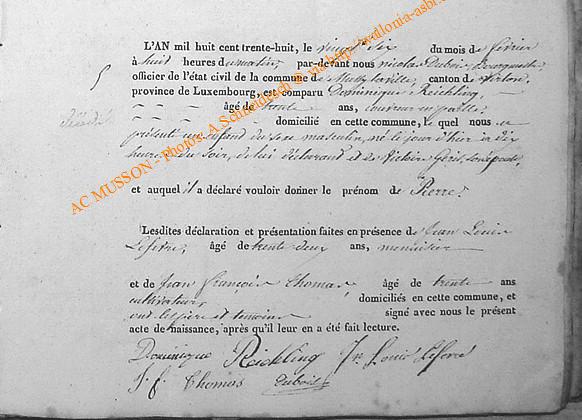 L'AN mil huit cent trente-huit, le vingt Six du mois de février
à huit heures du matin, par-devant nous nicolas Dubois, Bourguemestre
officier de l'état civil de la commune de Mussy la ville, canton de Virton,
5
province de Luxembourg, est comparu Dominique Reickling,
âgé de trente ans, couvreur en paille,
décédé
domicilié en cette commune, lequel nous a
présenté un enfant du sexe masculin, né le jour d'hier à dix
heures du soir, de lui déclarant et de
et auquel il a déclaré vouloir donner le prénom de Pierre.
Lesdites déclaration et présentation faites en présence de Jean Louis
Lefevre, âgé de trente deux ans, menuisier
et de Jean François Thomas âgé de trente ans
cultivateur, domiciliés en cette commune, et
ont les père et témoins signé avec nous le présent
acte de naissance, après qu'il leur en a été fait lecture.
Dominique Reickling Jn Louis Lefevre
J. f. Thomas Dubois
AC MUSSON - Photos: A. Schneidesch @ visit http://wallonia-asbl